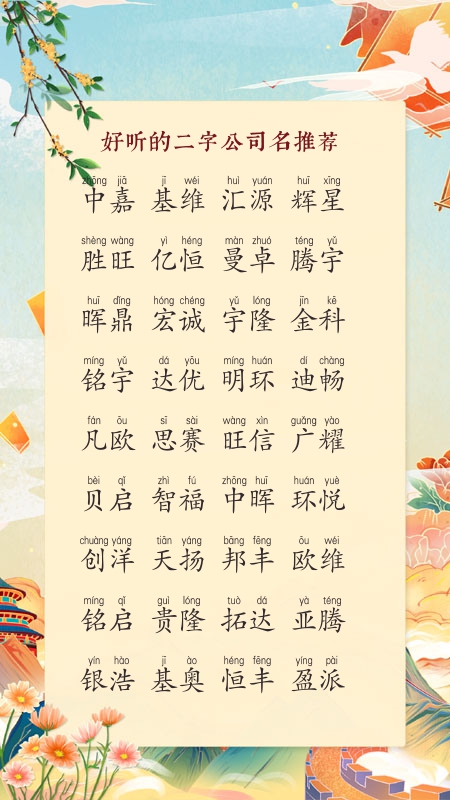 好听的二字公司名推荐
zhōng jiā jī wéi huì yuán huī xīng
中嘉 基维 汇源 辉星
shèng wàng yì héng màn zhuó téng yǔ
胜旺 亿恒 曼卓 腾宇
huī dǐng hóng chéng yǔ lóng jīn kē
晖鼎 宏诚 宇隆 金科
míng yǔ dá yōu míng huán dí chàng
铭宇 达优 明环 迪畅
fán ōu sī sài wàng xìn guǎng yào
凡欧 思赛 旺信 广耀
bèi qǐ zhì fú zhōng huī huán yuè
贝启 智福 中晖 环悦
chuàng yáng tiān yáng bāng fēng ōu wéi
创洋 天扬 邦丰 欧维
míng qǐ guì lóng tuò dá yà téng
铭启 贵隆 拓达 亚腾
yín hào jī ào héng fēng yíng pài
银浩 基奥 恒丰 盈派